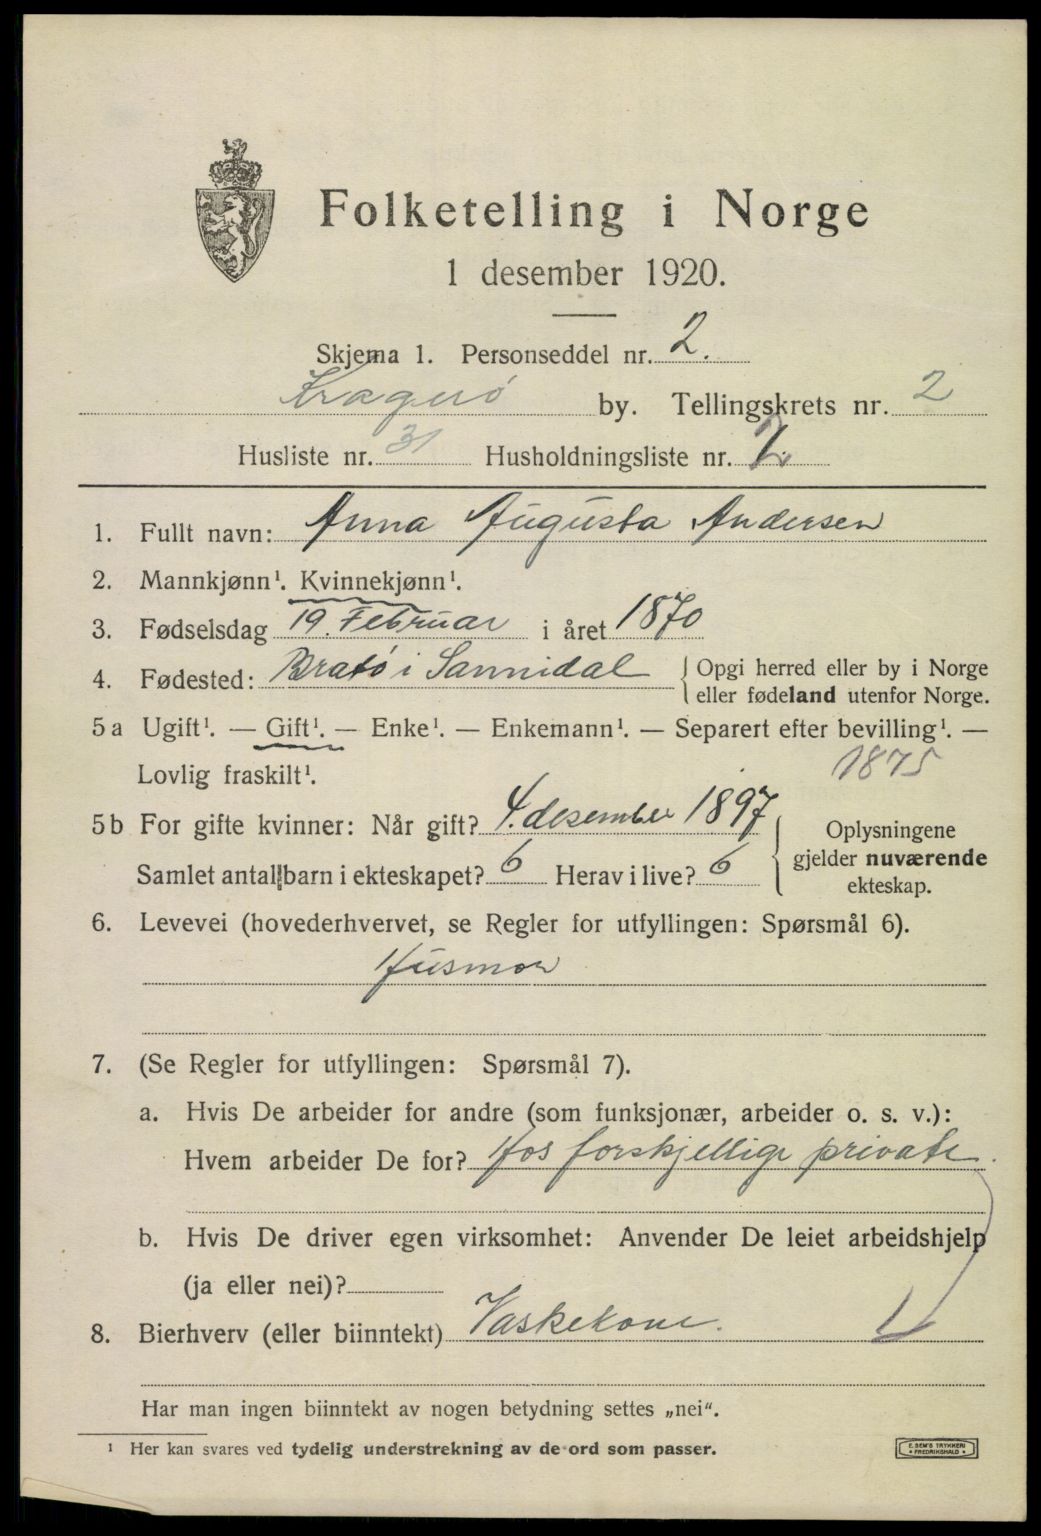 Folketelling i Norge
1 desember 1920.
Skjema 1. Personseddel nr. 2.
Kragerö by. Tellingskrets nr. 2
Husliste nr. 31 Husholdningsliste nr. 2.
1. Fullt navn: Anna Augusta Andersen
2. Mannkjønn¹. Kvinnekjønn¹.
3. Fødselsdag 19. Februar i året 1870
4. Fødested: Bratö i Sannidal
Opgi herred eller by i Norge
eller fødeland utenfor Norge.
5a Ugift¹. — Gift¹. — Enke¹. — Enkemann¹. — Separert efter bevilling¹. —
Lovlig fraskilt¹. 1875
5b For gifte kvinner: Når gift? 4. desember 1897
Samlet antal barn i ekteskapet? 6 Herav i live? 6
Oplysningene
gjelder nuværende
ekteskap.
6. Levevei (hovederhvervet, se Regler for utfyllingen: Spørsmål 6).
Husmor
7. (Se Regler for utfyllingen: Spørsmål 7).
a. Hvis De arbeider for andre (som funksjonær, arbeider o. s. v.):
Hvem arbeider De for? Hos forskjellige private.
b. Hvis De driver egen virksomhet: Anvender De leiet arbeidshjelp
(ja eller nei)?
8. Bierhverv (eller biinntekt) Vaskekone.
Har man ingen biinntekt av nogen betydning settes „nei“.
¹ Her kan svares ved tydelig understrekning av de ord som passer.
E. SEM'S TRYKKERI
• FREDRIKSHALD •